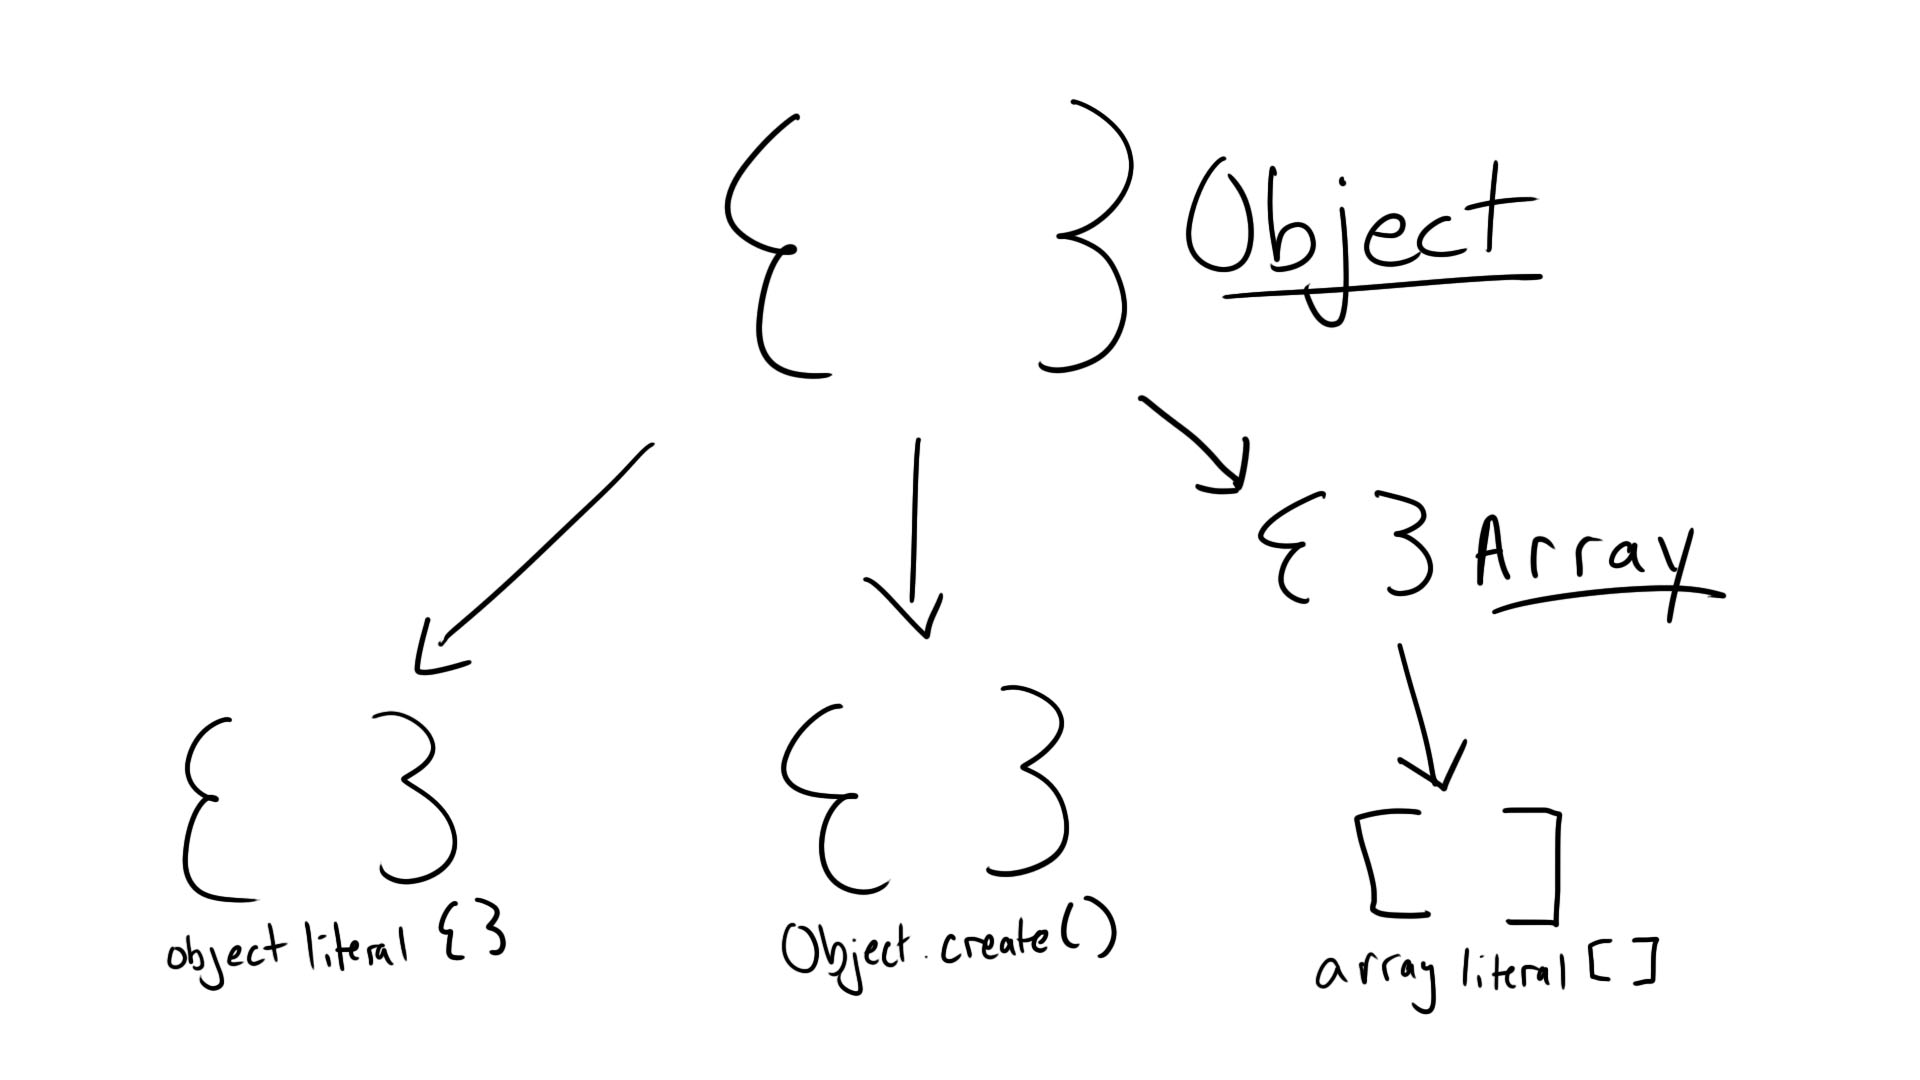 { } Object
{ } Array
{ }
{ }
[ ]
object literal { }
Object.create()
array literal [ ]